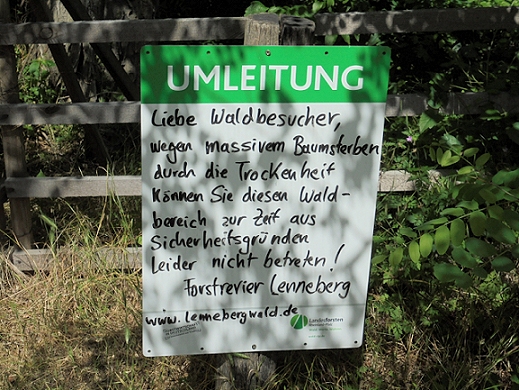 UMLEITUNG
Liebe Waldbesucher,
wegen massivem Baumsterben
durch die Trockenheit
können Sie diesen Wald-
bereich zur Zeit aus
Sicherheitsgründen
leider nicht betreten!
Forstrevier Lenneberg
www.lennebergwald.de
Landesforsten
Rheinland-Pfalz